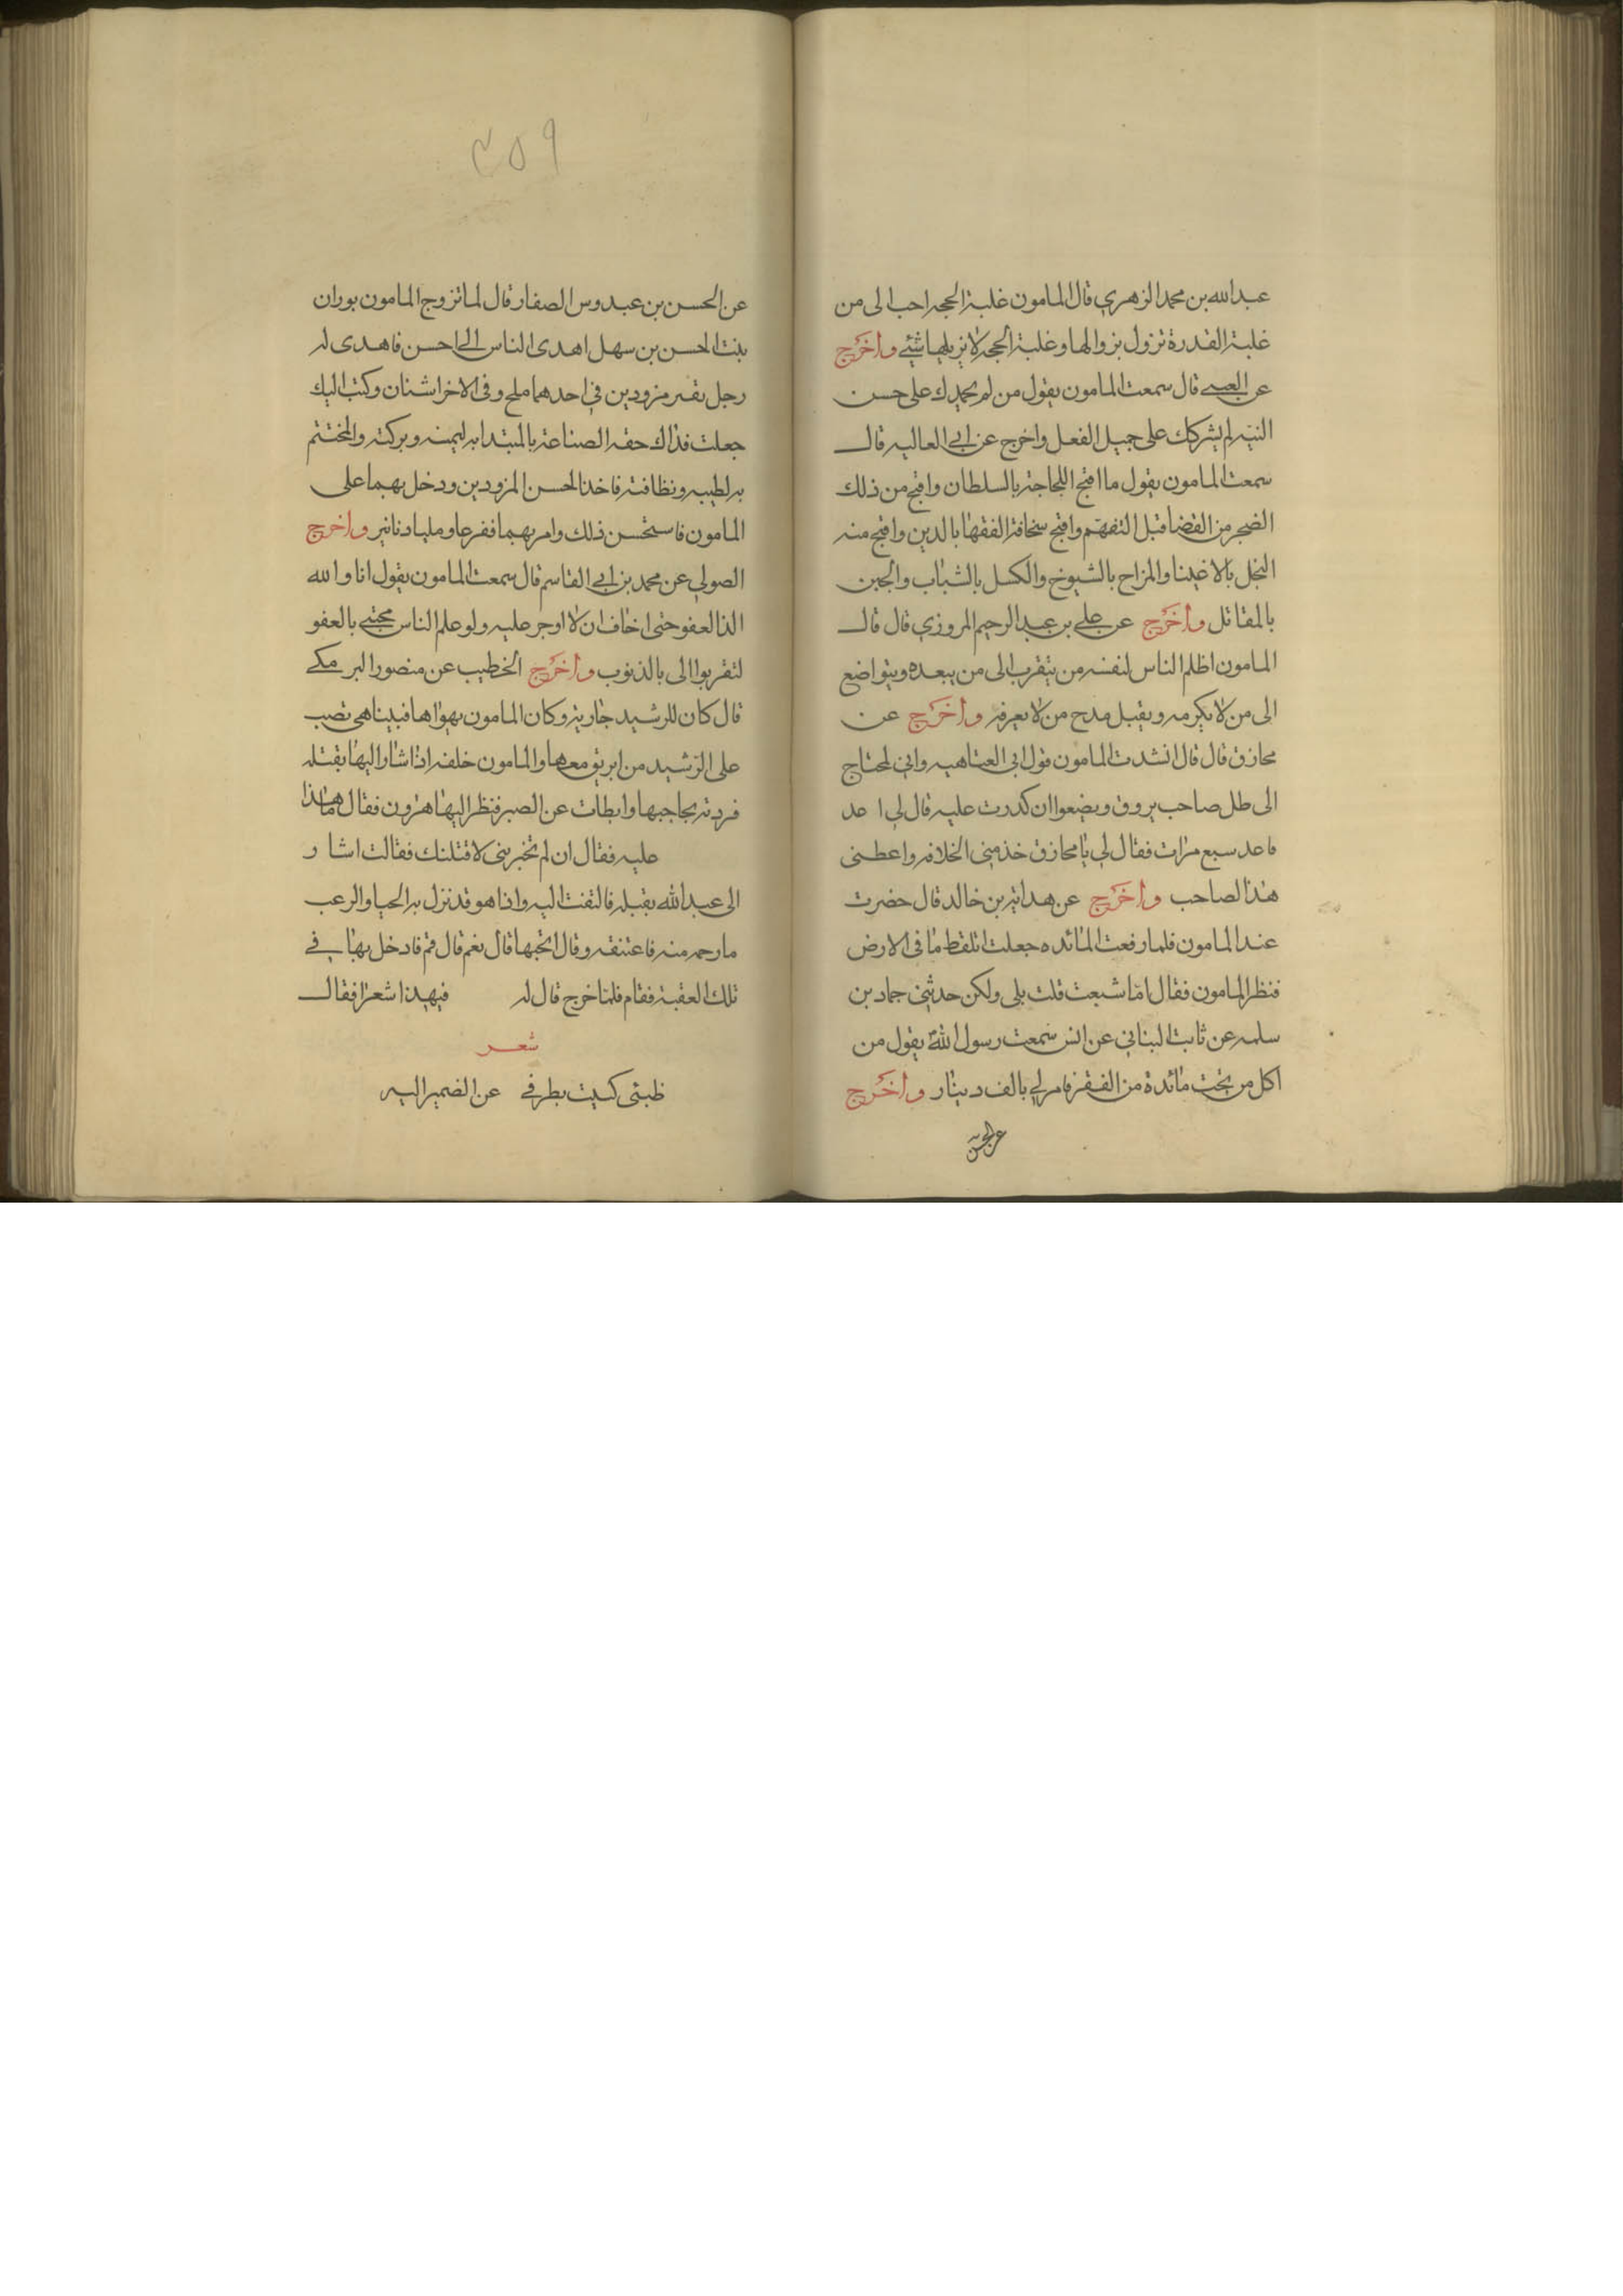 عبدالله بن محمد الزهري قال المامون غلبة الحجه احب الى من
غلبة القدرة تزول بزوالها وغلبة الحجه لا يزيلها شئے واخرج
عن العتبے قال سمعت المامون يقول من لم يحمدك على حسن
النيه لم يشركك على جميل الفعل واخرج عن ابے العاليه قال
سمعت المامون يقول ما اقبح اللجاجة بالسلطان واقبح من ذلك
الضجر من القضا قبل التفهم واقبح سخافة الفقها بالدين واقبح منه
البخل بالاغينا والمزاح بالشيوخ والكسل بالشباب والجبن
بالمقاتل واخرج عن علے بن عبد الرحيم المروزي قال قال
المامون اظلم الناس لنفسه من يتقرب الى من يبعده ويتواضع
الى من لا يكرمه ويقبل مدح من لا يعرفه واخرج عن
مخازق قال قال انشدت المامون قول ابى العتاهيه واني لمحتاج
الى ظل صاحب يروق ويضعوا ان كدرت عليه قال لي اعد
فاعد سبع مرات فقال لي يا مخازق خذ مني الخلافه واعطنى
هذا الصاحب واخرج عن هداية بن خالد قال حضرت
عند المامون فلما رفعت المائده جعلت اتلقط ما فى الارض
فنظر المامون فقال اما شبعت قلت بلى ولكن حدثني حماد بن
سلمه عن ثابت البناني عن انس سمعت رسول الله يقول من
اكل من تحت مائدة من الفقر فامر لي بالف دينار واخرج
عن الحسن
٢٥٩
عن الحسن بن عبدوس الصفار قال لما تزوج المامون بوران
بنت الحسن بن سهل اهدى الناس الے احسن فاهدى له
رجل بقير مزودين في احدهما ملح وفى الاخر اشنان وكتب اليك
جعلت فداك حقه الصناعة بالمبتدا به ليمنه وبركته والمختتم
به لطيبه ونظافته فاخذ الحسن المزودين ودخل بهما على
المامون فاستحسن ذلك وامر بهما ففرغا ومليا دنانير واخرج
الصولي عن محمد بن ابے القاسم قال سمعت المامون يقول انا والله
الذ العفو حتى اخاف ان لا اوجر عليه ولو علم الناس محبتے بالعفو
لتقربوا الى بالذنوب واخرج الخطيب عن منصور البرمكے
قال كان للرشيد جارية وكان المامون يهواها فبيناهى تصب
على الرشيد من ابريق معها والمامون خلفه اذا شار اليها بقبله
فردته بحاجبها وابطات عن الصبر فنظر اليها هرون فقال ما هذا
عليه فقال ان لم تخبرينى لاقتلنك فقالت اشار
الى عبدالله بقبله فالتفت اليه واذا هو قد نزل به الحيا والرعب
ما رحمه منه فاعتنقه وقال اتحبها قال نعم قال قم فادخل بها فے
تلك العقبة فقام فلما خرج قال له فيهذا شعرا فقال
شعر
ظبتى كنيت بطرفے عن الضمير اليه